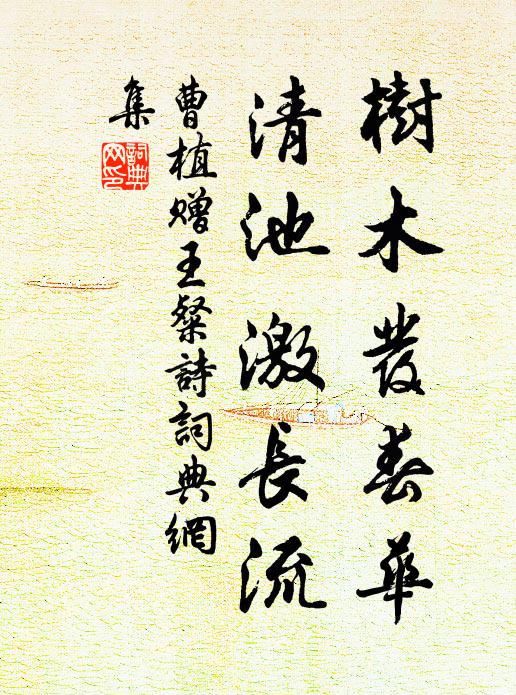 樹木發春華
清池激長流
曹植贈王粲詩詞典網
集
詞典
网印